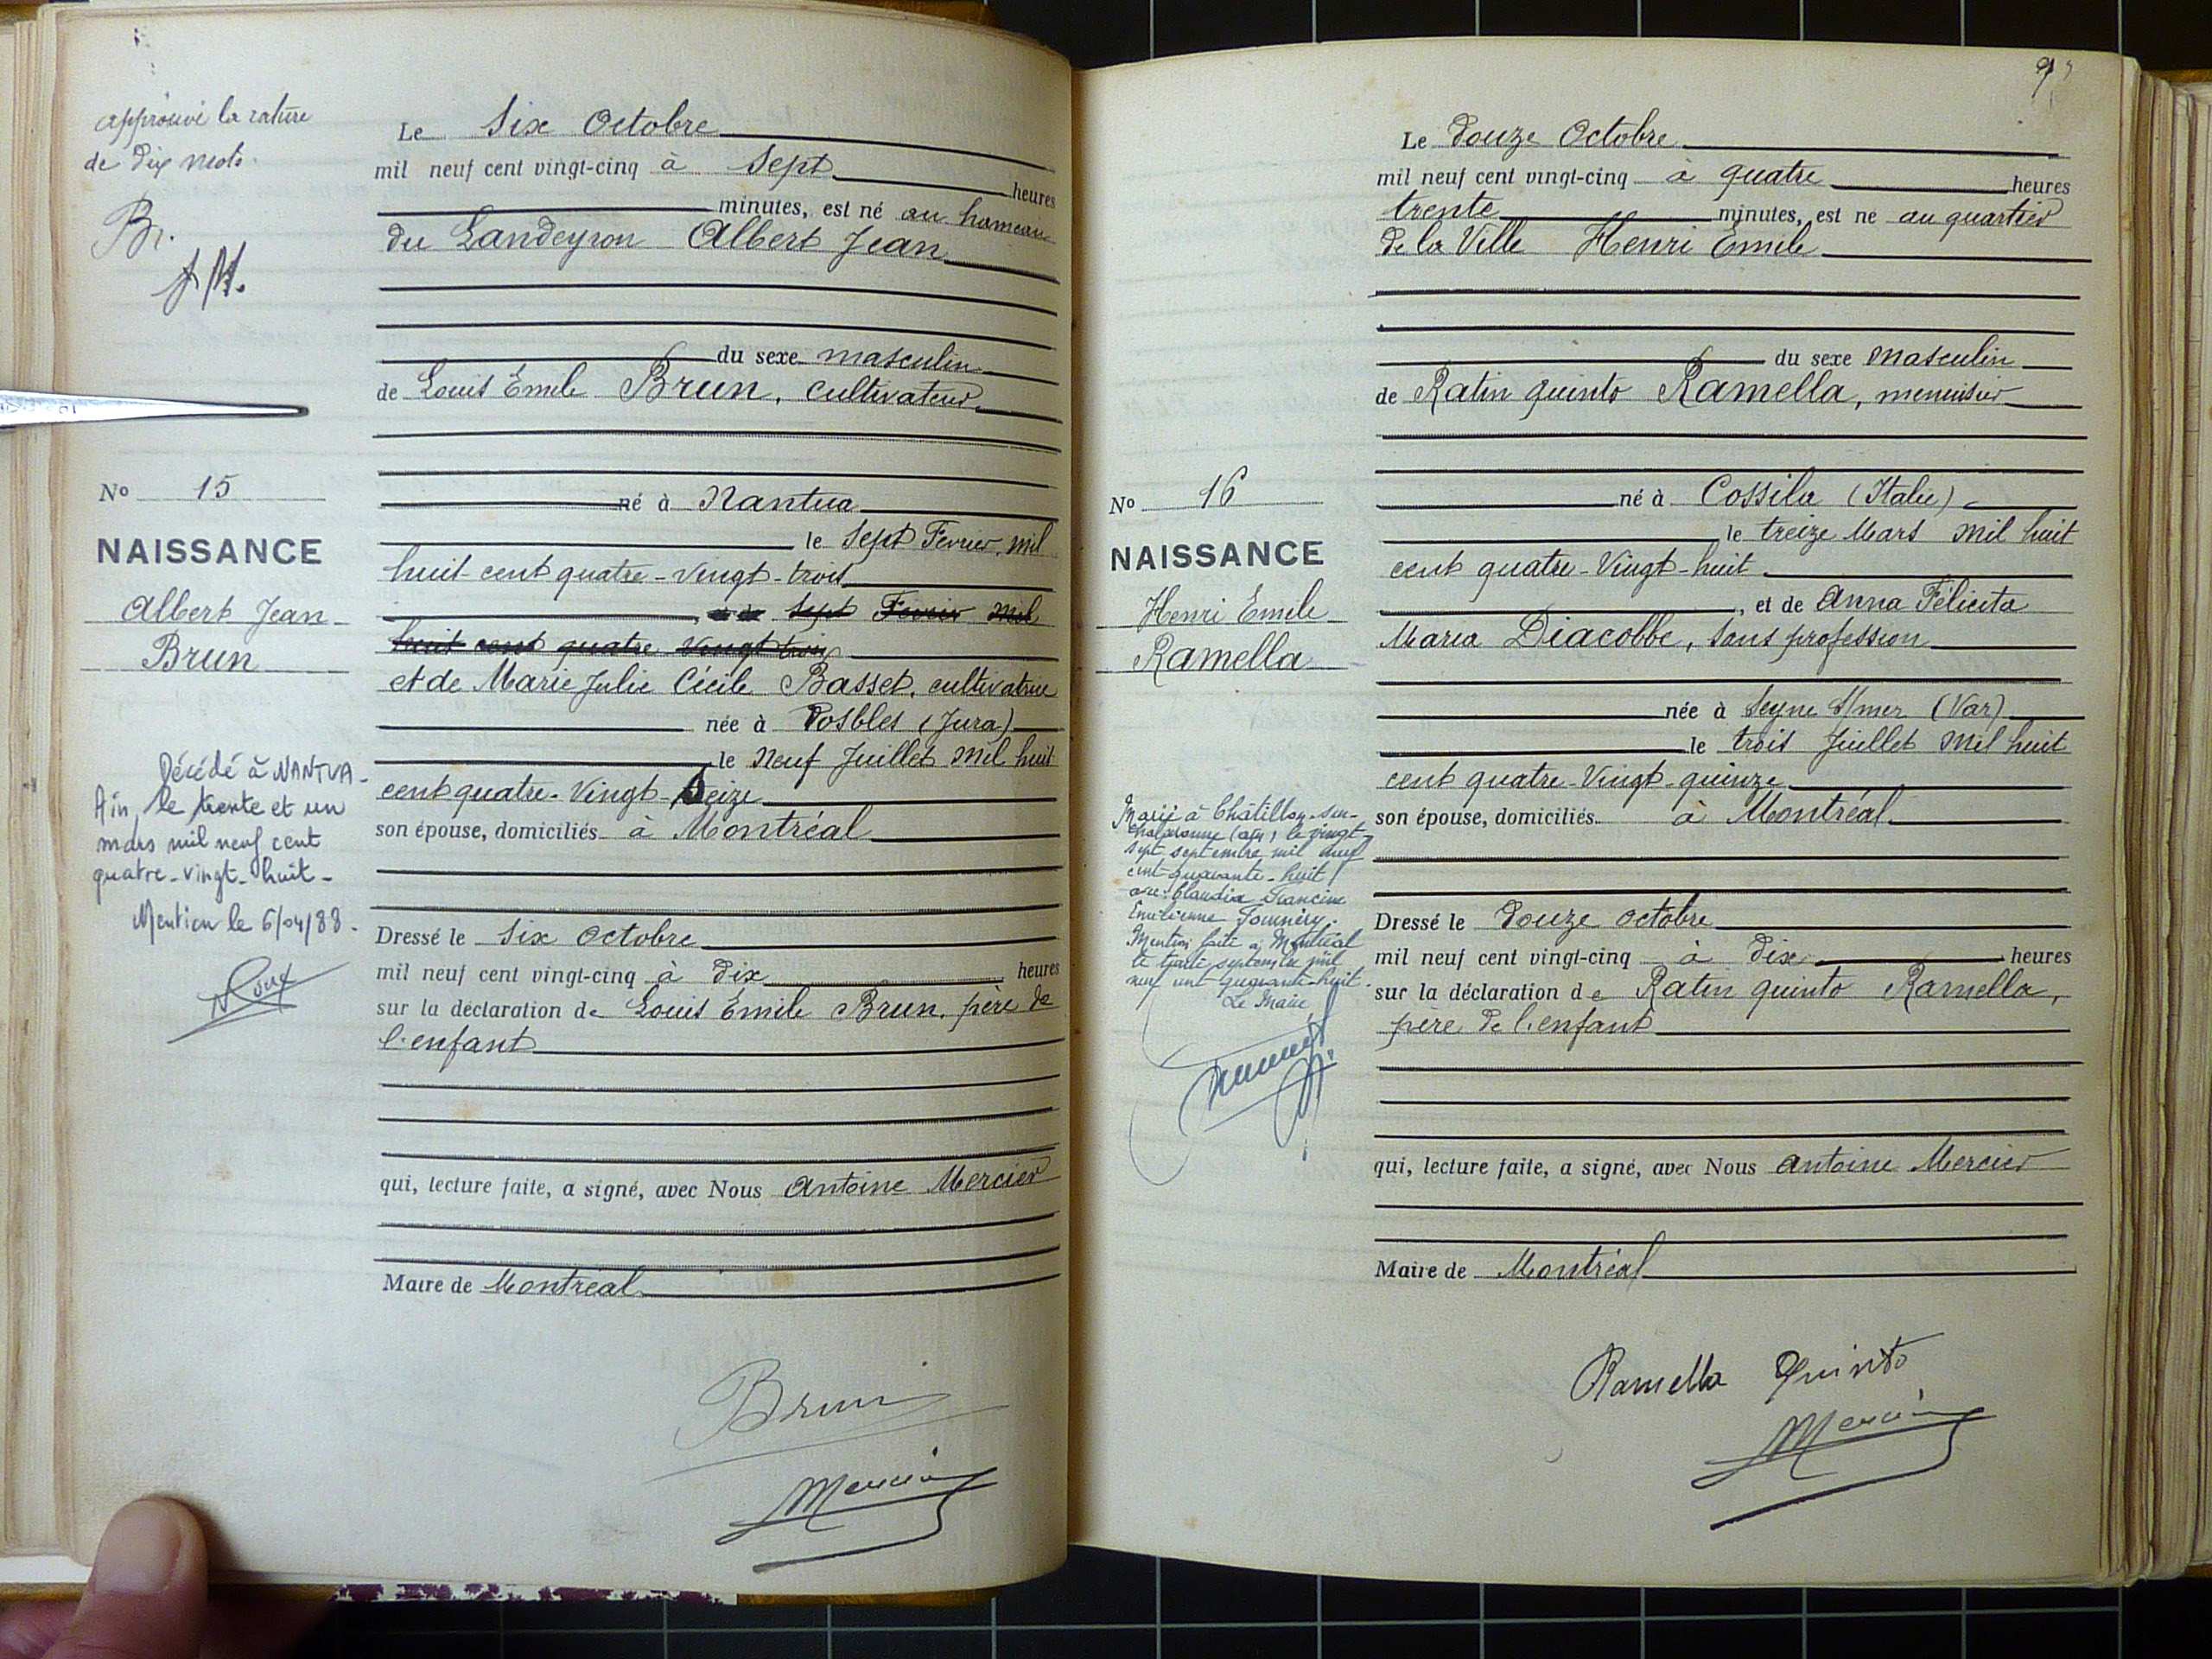 approuvé la rature
de dix mots.
Br.
Le Six Octobre
mil neuf cent vingt-cinq à Sept heures
minutes, est né au hameau
du Landeyron Albert Jean
du sexe masculin
de Louis Emile Brun, cultivateur
né à Nantua
le Sept Fevrier mil
huit cent quatre-vingt-trois
Sept Fevrier Mil
huit cent quatre Vingt trois
et de Marie Julie Cécile Basset, cultivatrice
née à Dosbles (Jura)
le Neuf Juillet Mil huit
cent quatre-Vingt-Seize
son épouse, domiciliés à Montréal
Dressé le Six Octobre
mil neuf cent vingt-cinq à Dix heures
sur la déclaration de Louis Emile Brun, père de
l'enfant
qui, lecture faite, a signé, avec Nous Antoine Mercier
Maire de Montréal
Brun
Mercier
No 15
NAISSANCE
Albert Jean
Brun
Décédé à NANTUA-
Ain, le trente et un
mars mil neuf cent
quatre-vingt-huit-
Mention le 6/04/88.
Le Douze Octobre
mil neuf cent vingt-cinq à quatre heures
trente minutes, est né au quartier
de la Ville Henri Emile
du sexe Masculin
de Ratin quinto Ramella, menuisier
né à Cossila (Italie)
le treize Mars Mil huit
cent quatre-Vingt-huit
, et de Anna Félicita
Maria Diacobbe, Sans profession
née à Seyne S/mer (Var)
le trois Juillet Mil huit
cent quatre-Vingt-quinze
son épouse, domiciliés à Montréal
Dressé le Douze octobre
mil neuf cent vingt-cinq à Dix heures
sur la déclaration de Ratin quinto Ramella,
père de l'enfant
qui, lecture faite, a signé, avec Nous Antoine Mercier
Maire de Montréal
Ramella Quinto
Mercier
No 16
NAISSANCE
Henri Emile
Ramella
Marié à Châtillon-sur-
Chalaronne (Ain) le vingt
sept septembre mil neuf
cent quarante-huit
avec Claudia Francine
Emilienne
Mention faite à Montréal
le trente septembre mil
neuf cent quarante-huit.
Le Maire